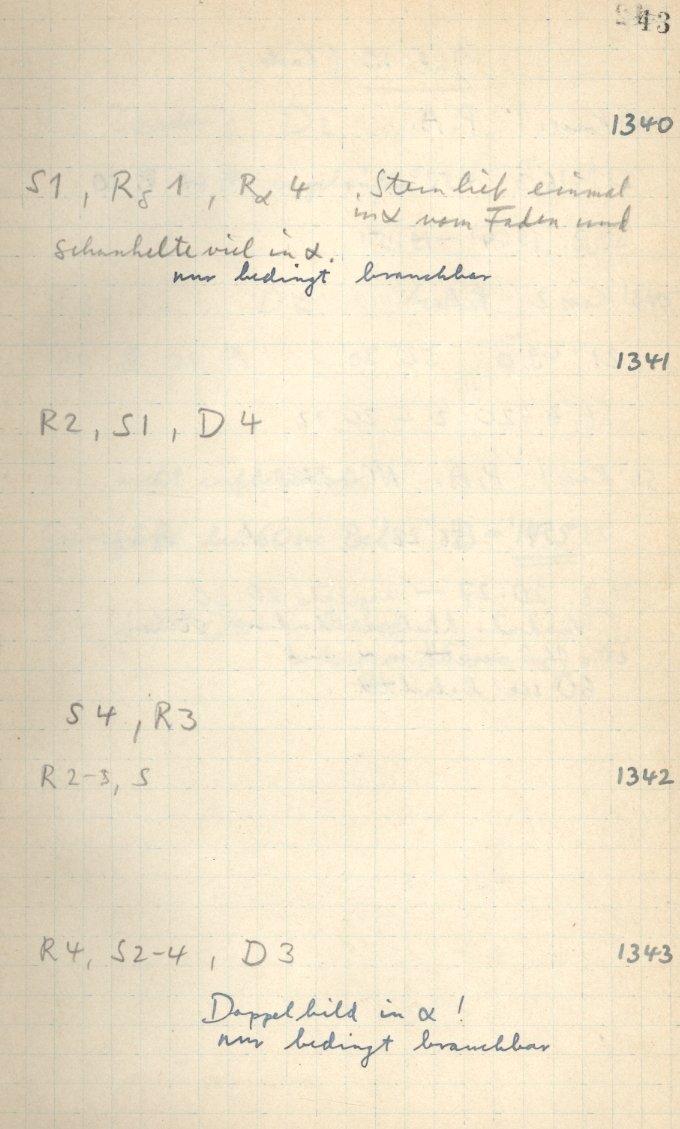 43
1340
S1, Rδ 1, Rα 4. Stern lief einmal
in α vom Faden und
schaukelte viel in α.
nur bedingt brauchbar
1341
R2, S1, D4
S4, R3
R2-3, S
1342
R4, S2-4, D3
1343
Doppelbild in α!
nur bedingt brauchbar